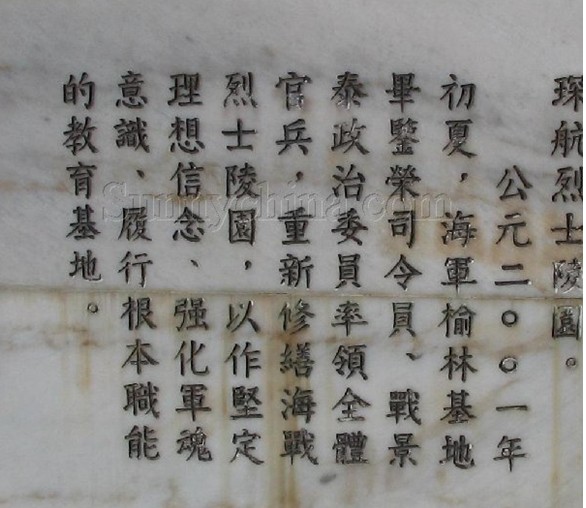 琛航烈士陵園。
公元二〇〇一年
初夏，海軍榆林基地
畢鑒榮司令員、戰景
泰政治委員率領全體
官兵，重新修繕海戰
烈士陵園，以作堅定
理想信念、强化軍魂
意識、履行根本職能
的教育基地。
SunnyChina.com